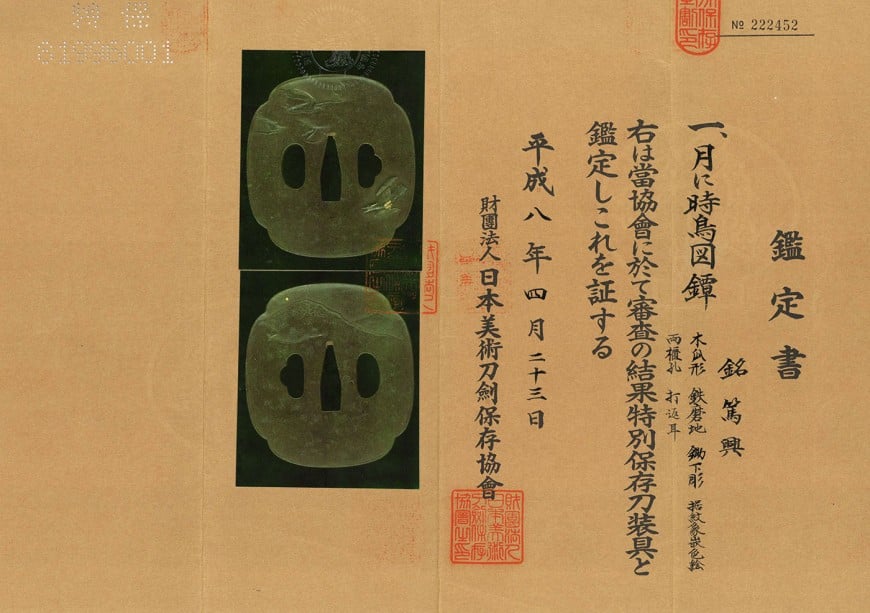 № 222452
鑑定書
一、月に時鳥図鐔
銘 篤興
木瓜形 鉄磨地 鋤下彫 据紋象嵌色絵
両櫃孔 打返耳
右は當協會に於て審査の結果特別保存刀装具と
鑑定しこれを証する
平成八年四月二十三日
財團法人日本美術刀劍保存協會